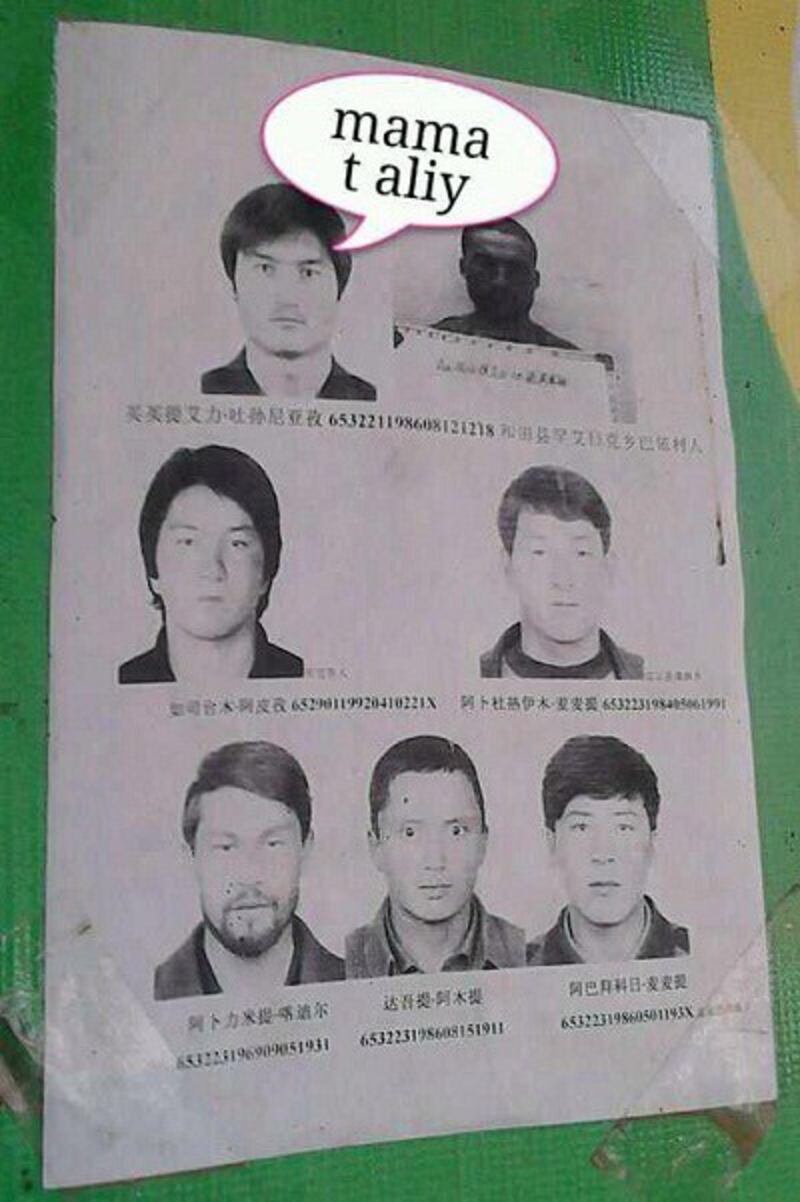 mama
t aliy
买买提艾力·吐孙尼亚孜 653221198608121218 和田县罕艾日克乡巴依利人
如则合木·阿皮孜 65290119920410221X
阿卜杜热伊木·麦麦提 653223198405061991
阿卜力米提·喀迪尔
达吾提·阿木提
阿巴拜科日·麦麦提
653223196909051931
653223198608151911
65322319860501193X